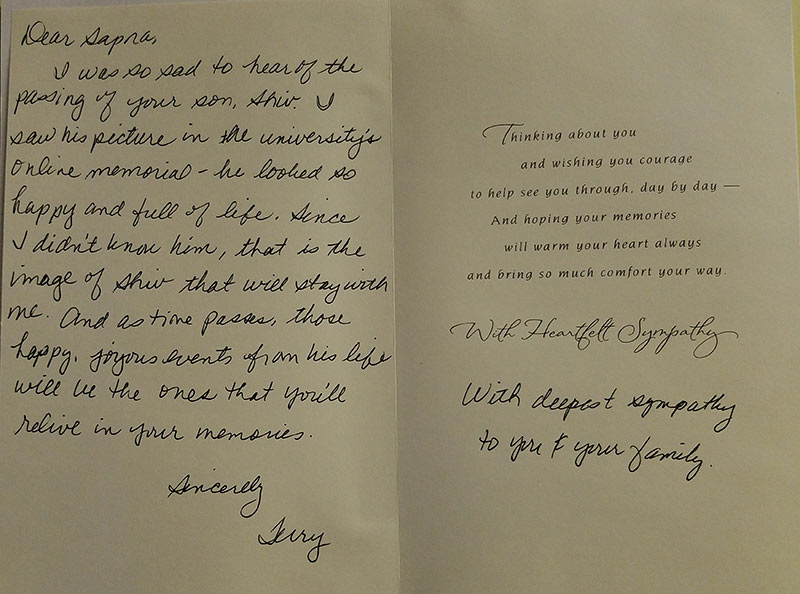 Dear Sapna,
I was so sad to hear of the
passing of your son, Shiv. I
saw his picture in the university's
online memorial - he looked so
happy and full of life. Since
I didn't know him, that is the
image of Shiv that will stay with
me. And as time passes, those
happy, joyous events from his life
will be the ones that you'll
relive in your memories.
Sincerely
Terry
Thinking about you
and wishing you courage
to help see you through, day by day —
And hoping your memories
will warm your heart always
and bring so much comfort your way.
With Heartfelt Sympathy
With deepest sympathy
to you & your family.